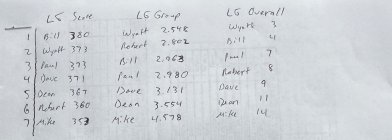 LG Score LG Group LG Overall
1 Bill 380 Wyatt 2.548 Wyatt 3
2 Wyatt 373 Robert 2.802 Bill 4
3 Paul 373 Bill 2.963 Paul 7
4 Dave 371 Paul 2.980 Robert 8
5 Dean 367 Dave 3.131 Dave 9
6 Robert 360 Dean 3.554 Dean 11
7 Mike 353 Mike 4.578 Mike 14